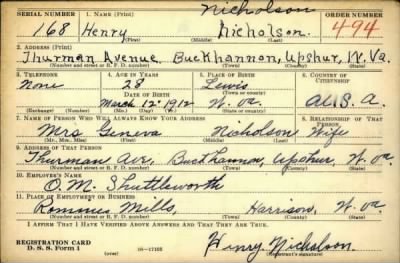 Nicholson
SERIAL NUMBER 1. NAME (Print) ORDER NUMBER
168 Henry Nicholson. 494
(First) (Middle) (Last)
2. ADDRESS (Print)
Thurman Avenue, Buckhannon, Upshur, W. Va.
(Number and street or R. F. D. number) (Town) (County) (State)
3. TELEPHONE 4. AGE IN YEARS 5. PLACE OF BIRTH 6. COUNTRY OF CITIZENSHIP
None 28 Lewis
DATE OF BIRTH (Town or county)
March 12 1912 W. Va. U. S. A.
(Exchange) (Number) (Mo.) (Day) (Yr.) (State or country)
7. NAME OF PERSON WHO WILL ALWAYS KNOW YOUR ADDRESS 8. RELATIONSHIP OF THAT PERSON
Mrs Geneva Nicholson Wife
(Mr., Mrs., Miss) (First) (Middle) (Last)
9. ADDRESS OF THAT PERSON
Thurman Ave, Buckhannon, Upshur, W. Va
(Number and street or R. F. D. number) (Town) (County) (State)
10. EMPLOYER'S NAME
O. M. Shuttleworth
11. PLACE OF EMPLOYMENT OR BUSINESS
Mills, Harrison, W. Va
(Number and street or R. F. D. number) (Town) (County) (State)
I AFFIRM THAT I HAVE VERIFIED ABOVE ANSWERS AND THAT THEY ARE TRUE.
REGISTRATION CARD
D. S. S. Form 1 16—17105 Henry Nicholson
(Registrant's signature)